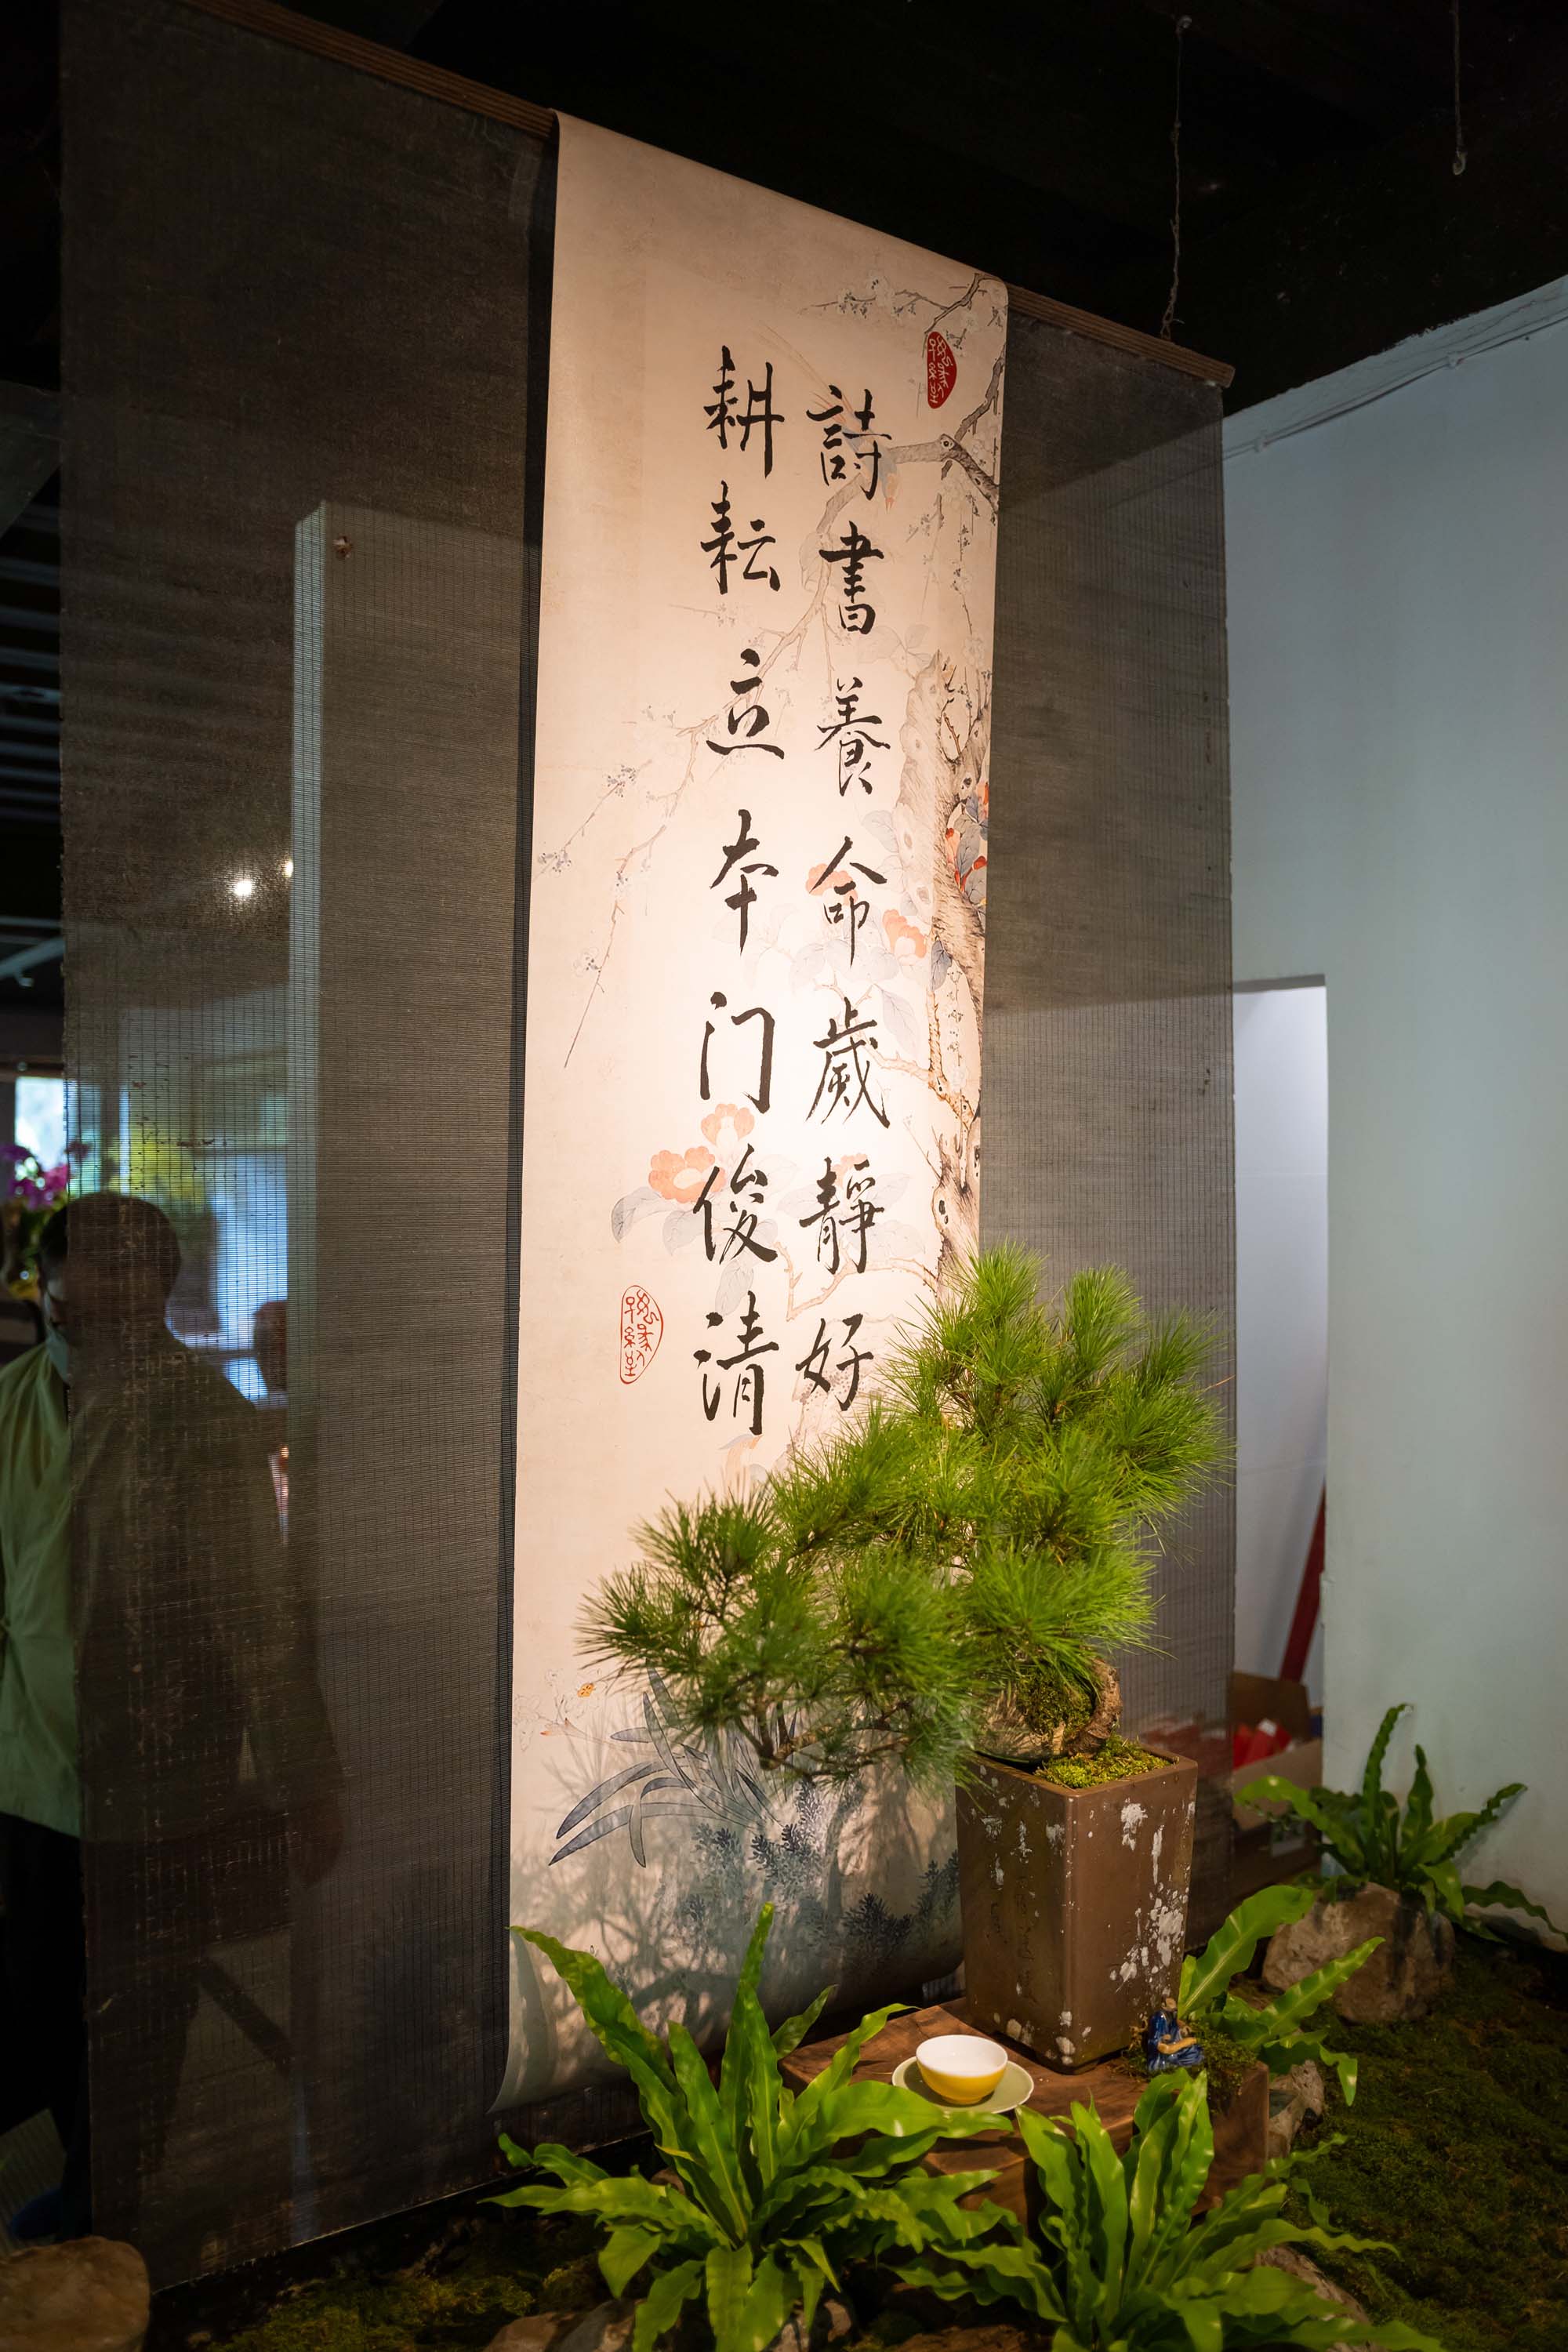 詩書養命歲靜好
耕耘立本门俊清